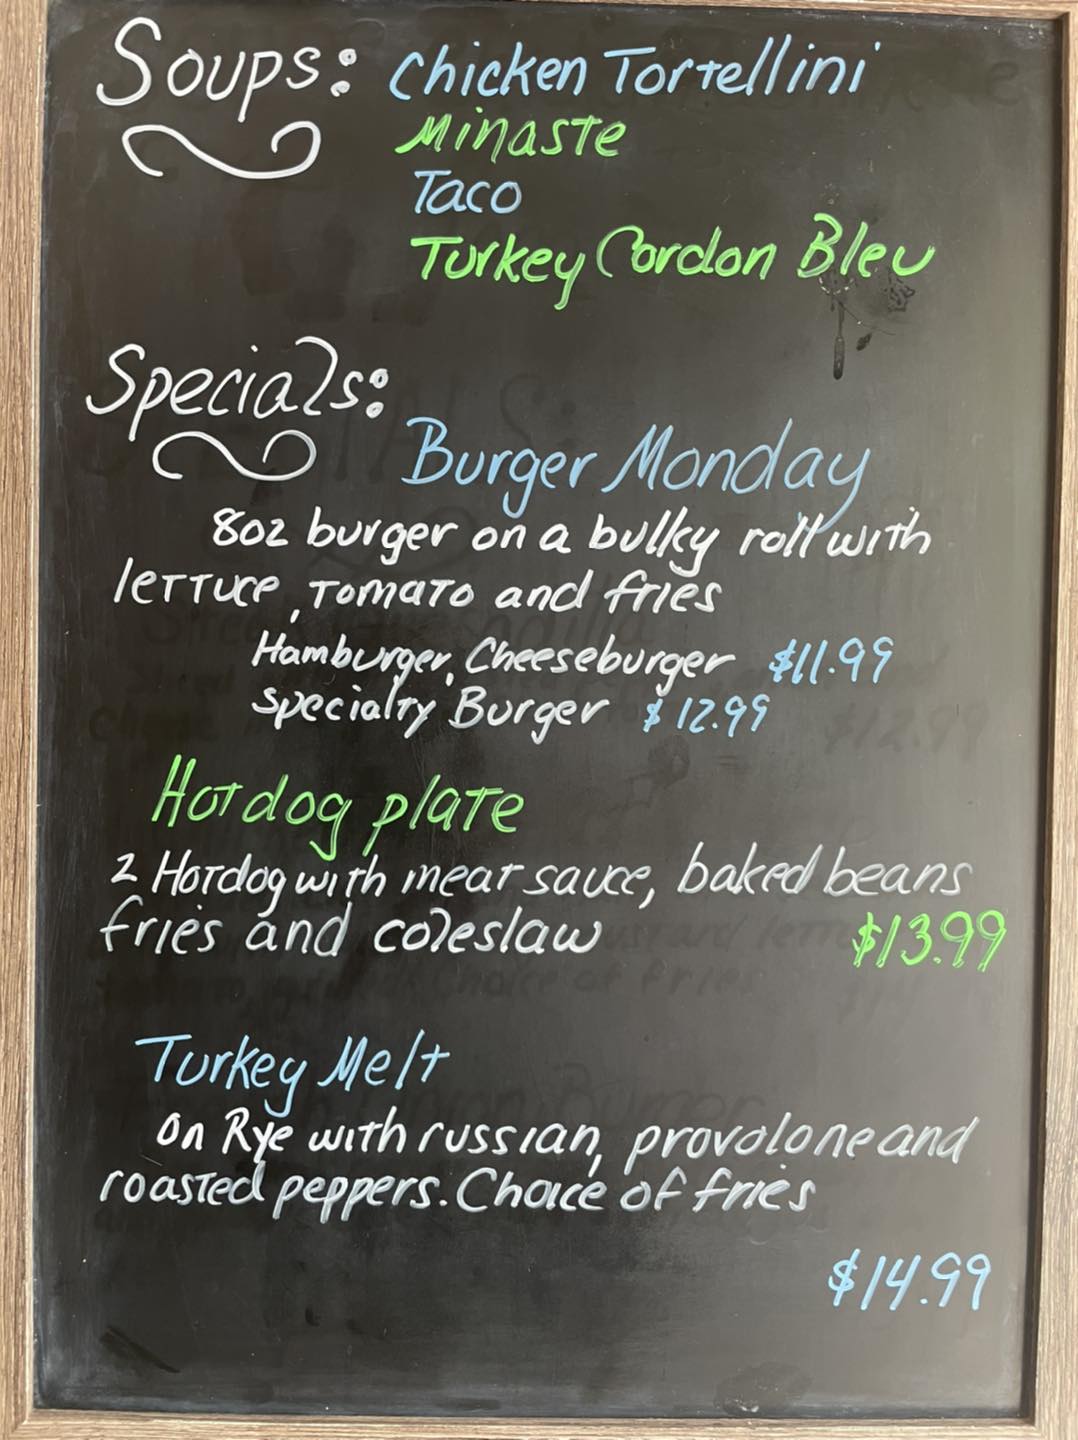 Soups: Chicken Tortellini
Minaste
Taco
Turkey Cordon Bleu
Specials:
Burger Monday
8oz burger on a bulky roll with
lettuce, tomato and fries
Hamburger, Cheeseburger $11.99
Specialty Burger $12.99
Hotdog plate
2 Hotdog with meat sauce, baked beans
fries and coleslaw $13.99
Turkey Melt
on Rye with russian, provolone and
roasted peppers. Choice of fries
$14.99